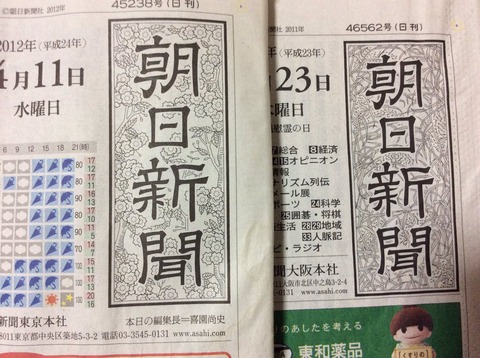 ©朝日新聞社 2012年
45238号(日刊)
2012年(平成24年)
4月11日
水曜日
朝日新聞
12 15 18 21(時)
新聞東京本社 本日の編集長=喜園尚史
8011東京都中央区築地5-3-2 電話03-3545-0131 www.asahi.com
聞社 2011年
46562号(日刊)
(平成23年)
23日
曜日
慰霊の日
朝日新聞
7総合 8経済
15オピニオン
情報
ナリズム列伝
メール展
ポーツ 24科学
25囲碁・将棋
生活 28 29地域
33人脈記
ビ・ラジオ
聞大阪本社
大阪市北区中之島3-2-4
0131 www.asahi.com
のあしたを考える
東和薬品
くすりの